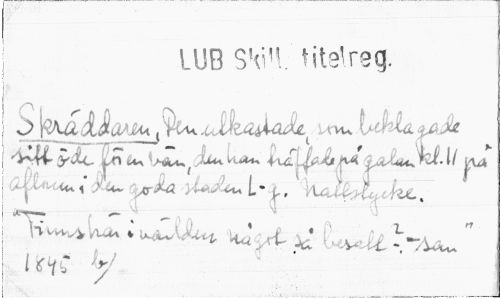 LUB Skill. titelreg.
Skräddaren, Den utkastade, som beklagade
sitt öde för en vän, den han träffade på gatan kl. 11 på
aftonen i den goda staden L-g. Nattstycke.
"Finns här i världen något så besatt ? - som"
1845 b/